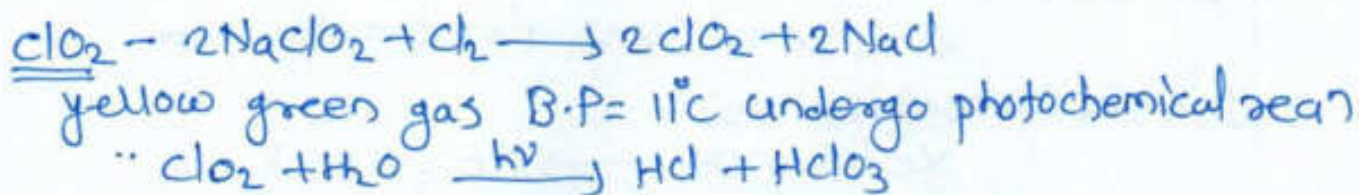 ClO₂ - 2NaClO₂ + Cl₂ ⟶ 2ClO₂ + 2NaCl
yellow green gas B.P = 11°C undergo photochemical reaⁿ
" ClO₂ + H₂O —hν→ HCl + HClO₃